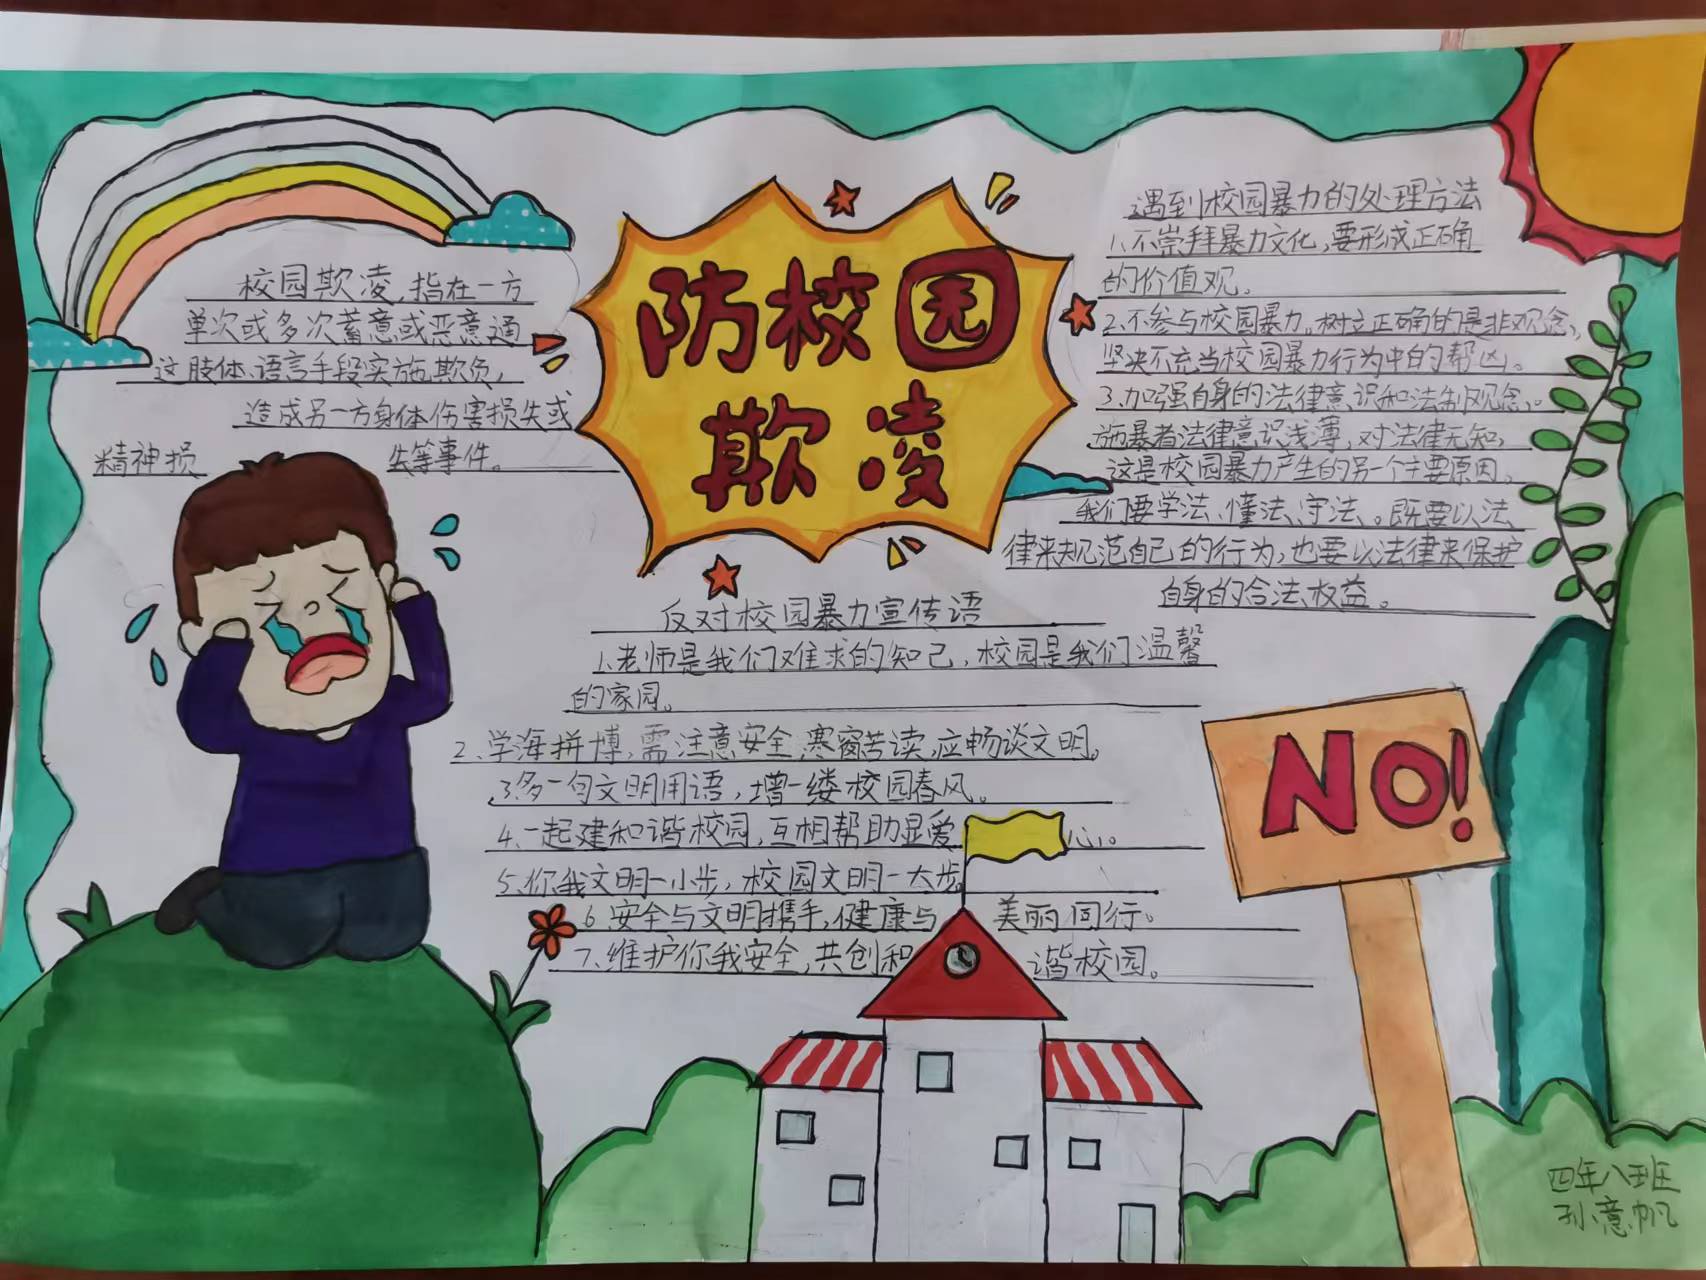 防校园
欺凌
校园欺凌,指在一方
单次或多次蓄意或恶意通
这肢体、语言手段实施欺负,
造成另一方身体伤害损失或
精神损 失等事件。
遇到校园暴力的处理方法
1、不崇拜暴力文化,要形成正确
的价值观。
2、不参与校园暴力。树立正确的是非观念,
坚决不充当校园暴力行为中的帮凶。
3、加强自身的法律意识和法制观念。
施暴者法律意识浅薄,对法律无知,
这是校园暴力产生的另一个主要原因。
我们要学法、懂法、守法。既要以法
律来规范自己的行为,也要以法律来保护
自身的合法权益。
反对校园暴力宣传语
1、老师是我们难求的知己,校园是我们温馨
的家园。
2、学海拼博,需注意安全,寒窗苦读,应畅谈文明。
3、多一句文明用语,增一缕校园春风。
4、一起建和谐校园,互相帮助显爱心。
5、你我文明一小步,校园文明一大步
6、安全与文明携手,健康与美丽同行。
7、维护你我安全,共创和谐校园。
NO!
四年八班
孙意帆